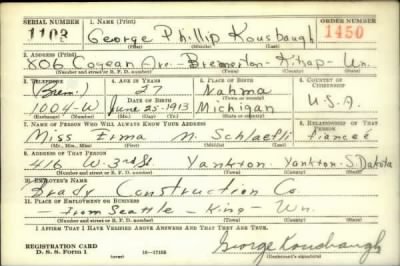 SERIAL NUMBER 1. NAME (Print) ORDER NUMBER
1103 George Phillip Kousbaugh 1450
(First) (Middle) (Last)
2. ADDRESS (Print)
806 Cogean Ave. - Bremerton - Kitsap - Wn.
(Number and street or R. F. D. number) (Town) (County) (State)
3. TELEPHONE 4. AGE IN YEARS 5. PLACE OF BIRTH 6. COUNTRY OF CITIZENSHIP
Brem.) 27 Nahma
DATE OF BIRTH (Town or county)
1004-W June 25-1913 Michigan U.S.A.
(Exchange) (Number) (Mo.) (Day) (Yr.) (State or country)
7. NAME OF PERSON WHO WILL ALWAYS KNOW YOUR ADDRESS 8. RELATIONSHIP OF THAT PERSON
Miss Erma N. Schlaefli fianceé
(Mr., Mrs., Miss) (First) (Middle) (Last)
9. ADDRESS OF THAT PERSON
416 W. 3rd St Yankton, Yankton - S. Dakota
(Number and street or R. F. D. number) (Town) (County) (State)
10. EMPLOYER'S NAME
Brady Construction Co.
11. PLACE OF EMPLOYMENT OR BUSINESS
- from Seattle - King - Wn.
(Number and street or R. F. D. number) (Town) (County) (State)
I AFFIRM THAT I HAVE VERIFIED ABOVE ANSWERS AND THAT THEY ARE TRUE.
REGISTRATION CARD
D. S. S. Form 1 16-17105 George Kousbaugh
(Registrant's signature)